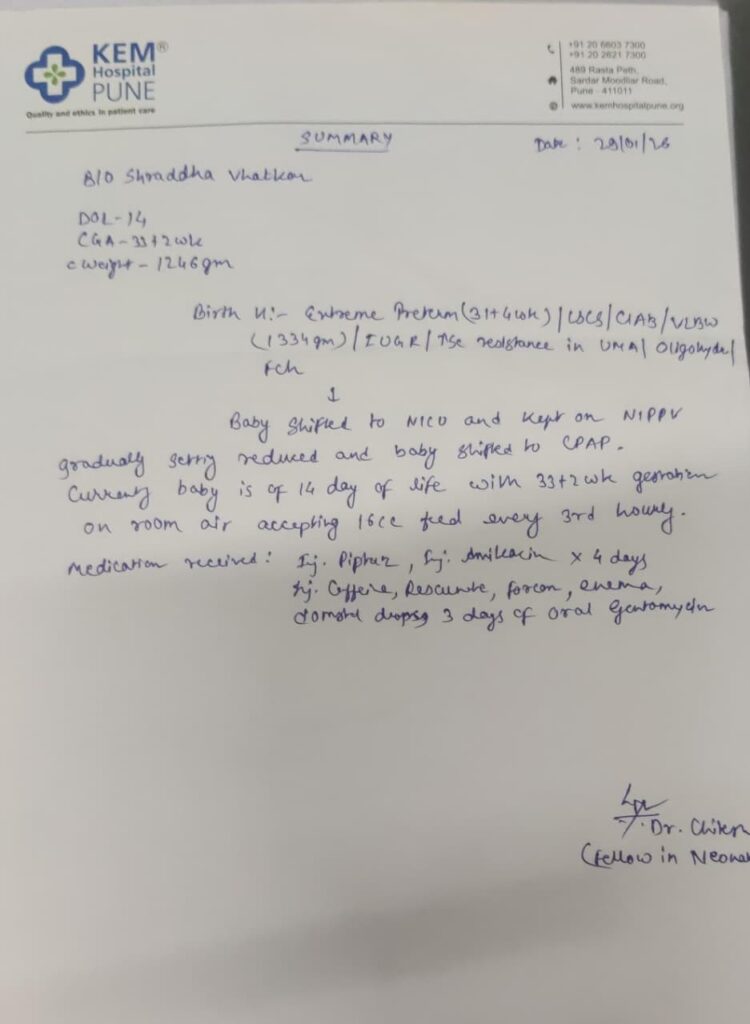 KEM®
Hospital
PUNE
Quality and ethics in patient care
+91 20 6603 7300
+91 20 2621 7300
489 Rasta Peth,
Sardar Moodliar Road,
Pune - 411011
www.kemhospitalpune.org
SUMMARY
Date : 29/01/26
B/O Shraddha Vhatkar
DOL-14
CGA-33+2wk
c weight - 1246gm
Birth H:- Extreme Preterm (31+4wk) / LSCS / CIAB / VLBW
(1334gm) / IUGR / ↑se resistance in UMA / Oligohyd /
↓
Baby shifted to NICU and kept on NIPPV
gradually setting reduced and baby shifted to CPAP.
Currently baby is of 14 day of life with 33+2wk gestation
on room air accepting 16cc feed every 3rd hourly.
Medication received: Inj. Piptaz, Inj. Amikacin x 4 days
Inj. Caffeine, forcan, enema,
drops, 3 days of oral Gentamycin
Dr.
(Fellow in Neonat